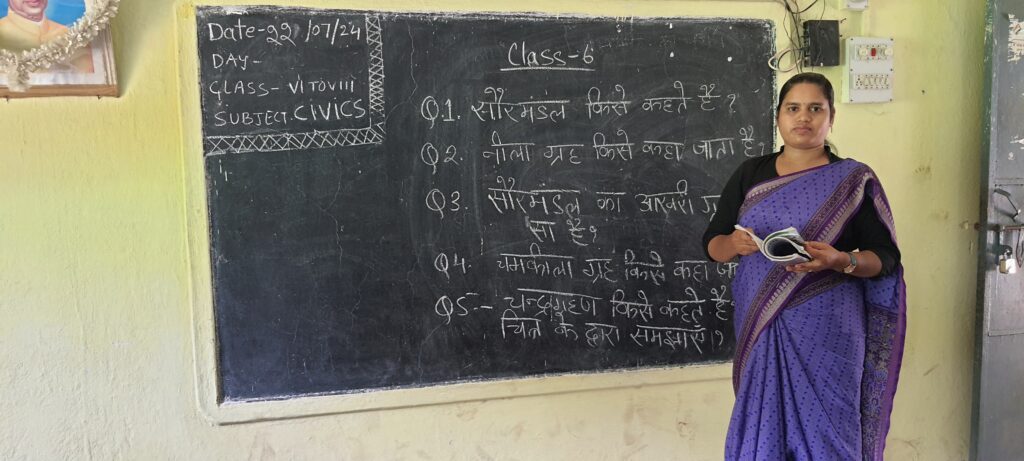 Date-22/07/24
DAY-
CLASS- VI TO VIII
SUBJECT. CIVICS
Class-6
Q1. सौरमंडल किसे कहते हैं ?
Q2. नीला ग्रह किसे कहा जाता है ?
Q3. सौरमंडल का आखरी
सा है ?
Q4. चमकीला ग्रह किसे कहा
Q5.- चन्द्रग्रहण किसे कहते है
चित्र के द्वारा समझाएँ।?